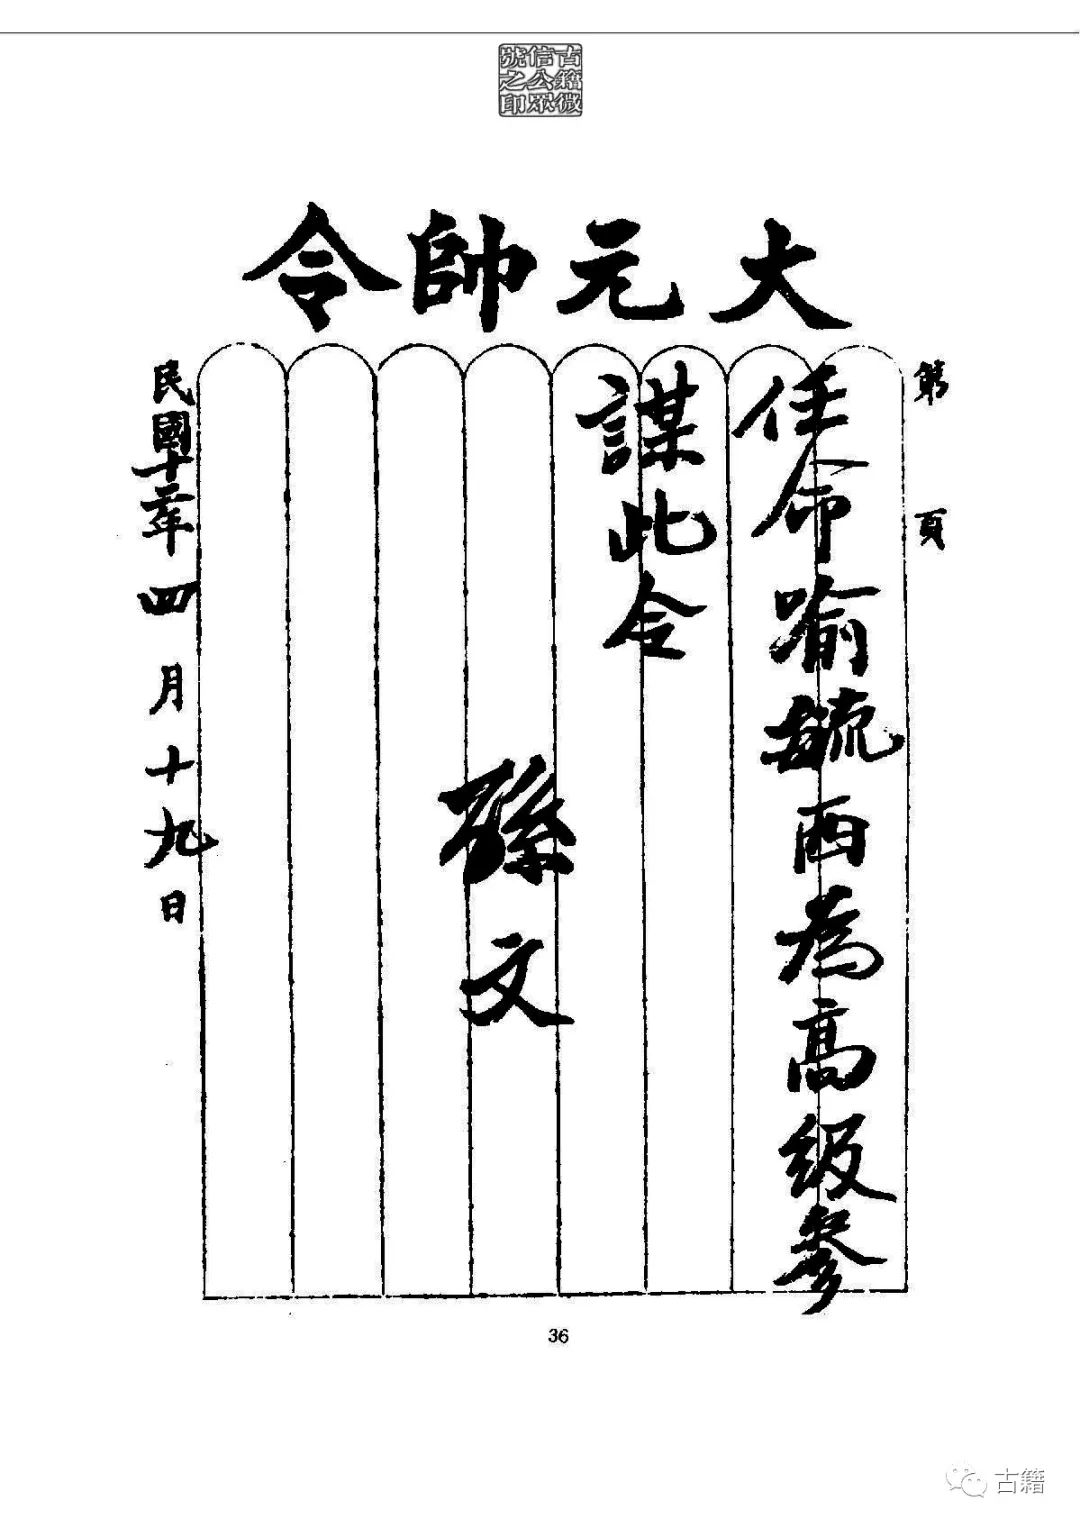 古籍微
信公眾
號之印
大元帥令
第 頁
任命喻毓西為高級參
謀此令
孫文
民國十二年四月十九日
36
古籍